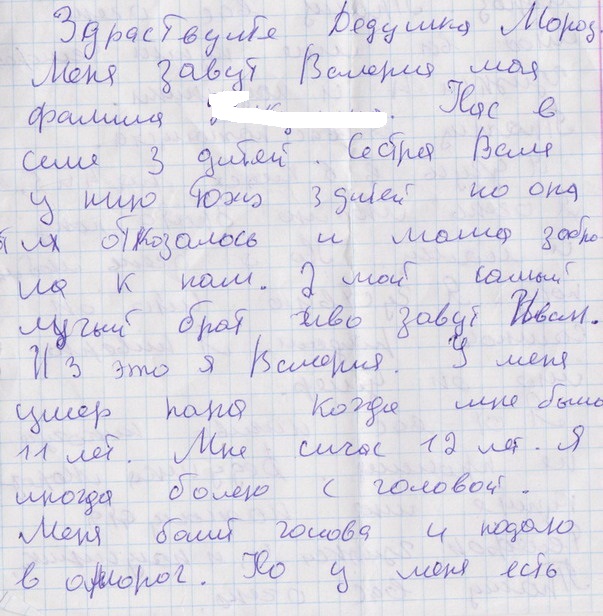 Здраствуйте Дедушка Мороз.
Меня завут Валерия моя
фамилия. Нас в
семе 3 дитей. Сестра Валя
у нию тожэ 3 дитей но она
от их отказалось и мама забра
ла к нам. 2 мой самый
лучый брат ево завут Иван.
И 3 это я Валерия. У меня
умер папа когда мне было
11 лет. Мне сичас 12 лет. Я
иногда болею с головой.
Меня болит голова и подаю
в оморог. Но у меня есть